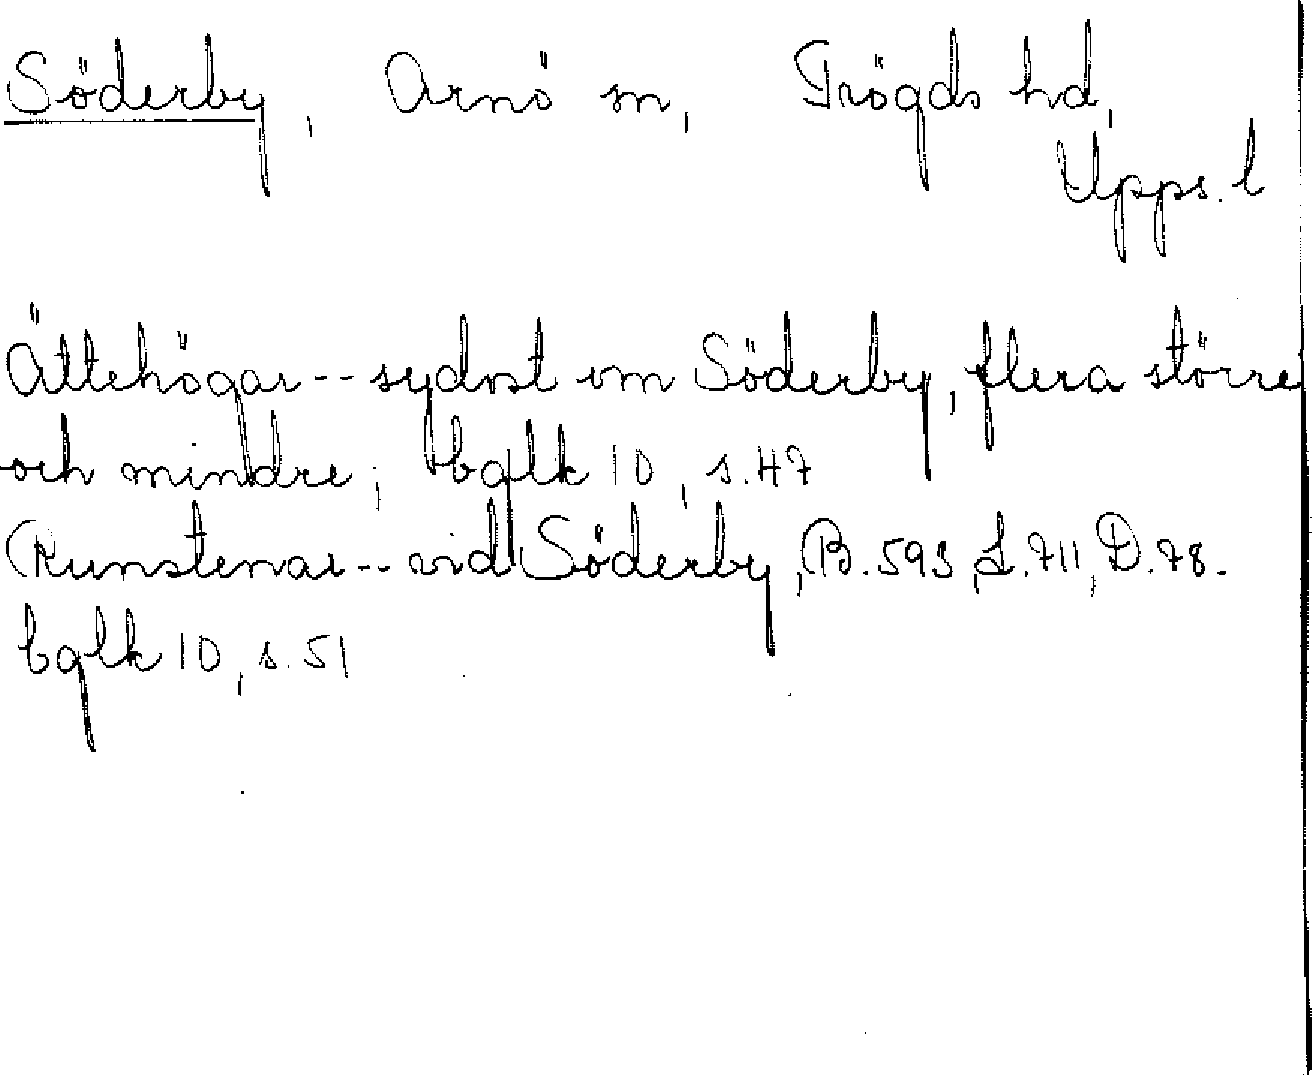 Söderby, Arnö sn, Trögds hd,
Upps. l
Ättehögar -- sydost om Söderby, flera större
och mindre; bglk 10, s.47
Runstenar -- vid Söderby, B.593, L.711, D.78.
bglk 10, s.51